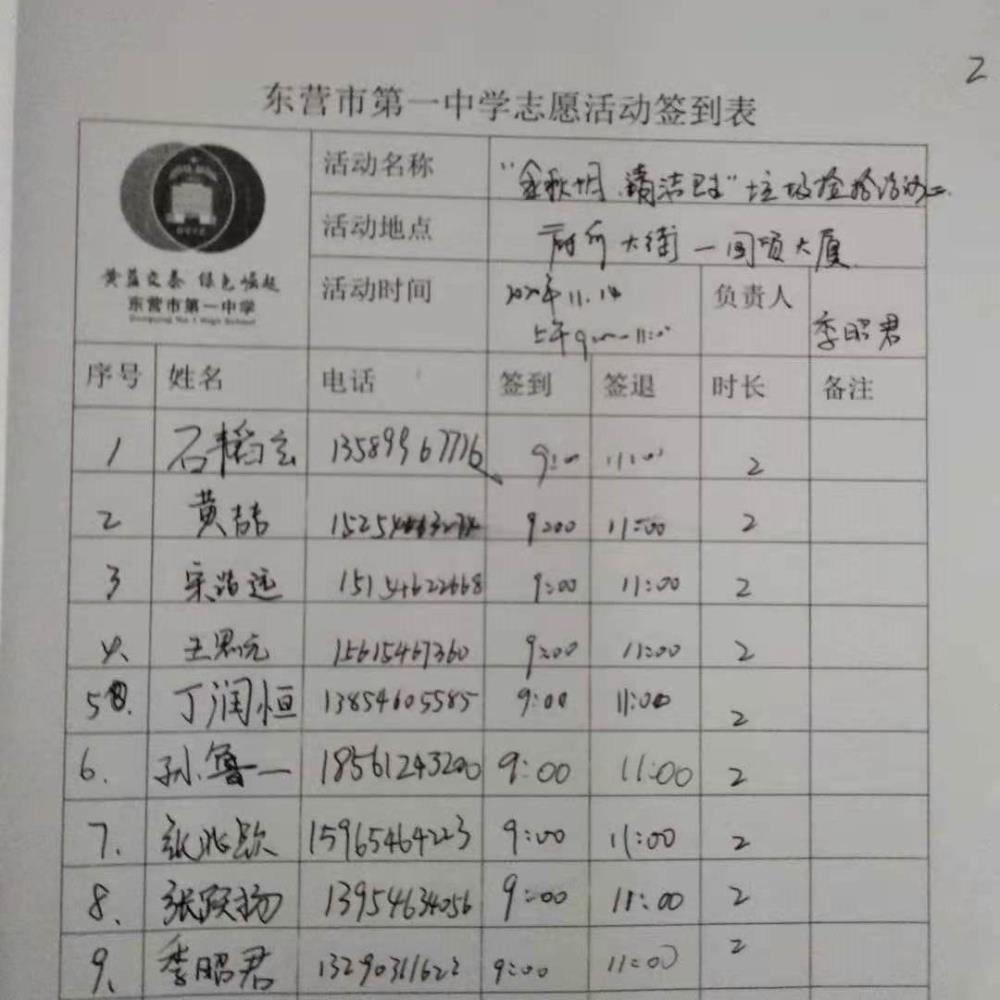 2
东营市第一中学志愿活动签到表
活动名称 "金秋十月 清洁 " 垃圾捡拾活动二
活动地点 大街 一 大厦
黄蓝交泰 绿色崛起
东营市第一中学
Dongying No.1 High School
活动时间 2020年11.14 负责人 季昭君
上午9:00—11:00
序号 姓名 电话 签到 签退 时长 备注
1 石韬云 13589967776 9:00 11:00 2
2 黄喆 15254 9:00 11:00 2
3 宋 远 15154622668 9:00 11:00 2
4、 王思元 15615467360 9:00 11:00 2
5 丁润恒 13854605585 9:00 11:00 2
6. 孙鲁一 18561243200 9:00 11:00 2
7. 张兆歆 15965464223 9:00 11:00 2
8、 张跃扬 13954634056 9:00 11:00 2
9、 季昭君 13290311622 9:00 11:00 2